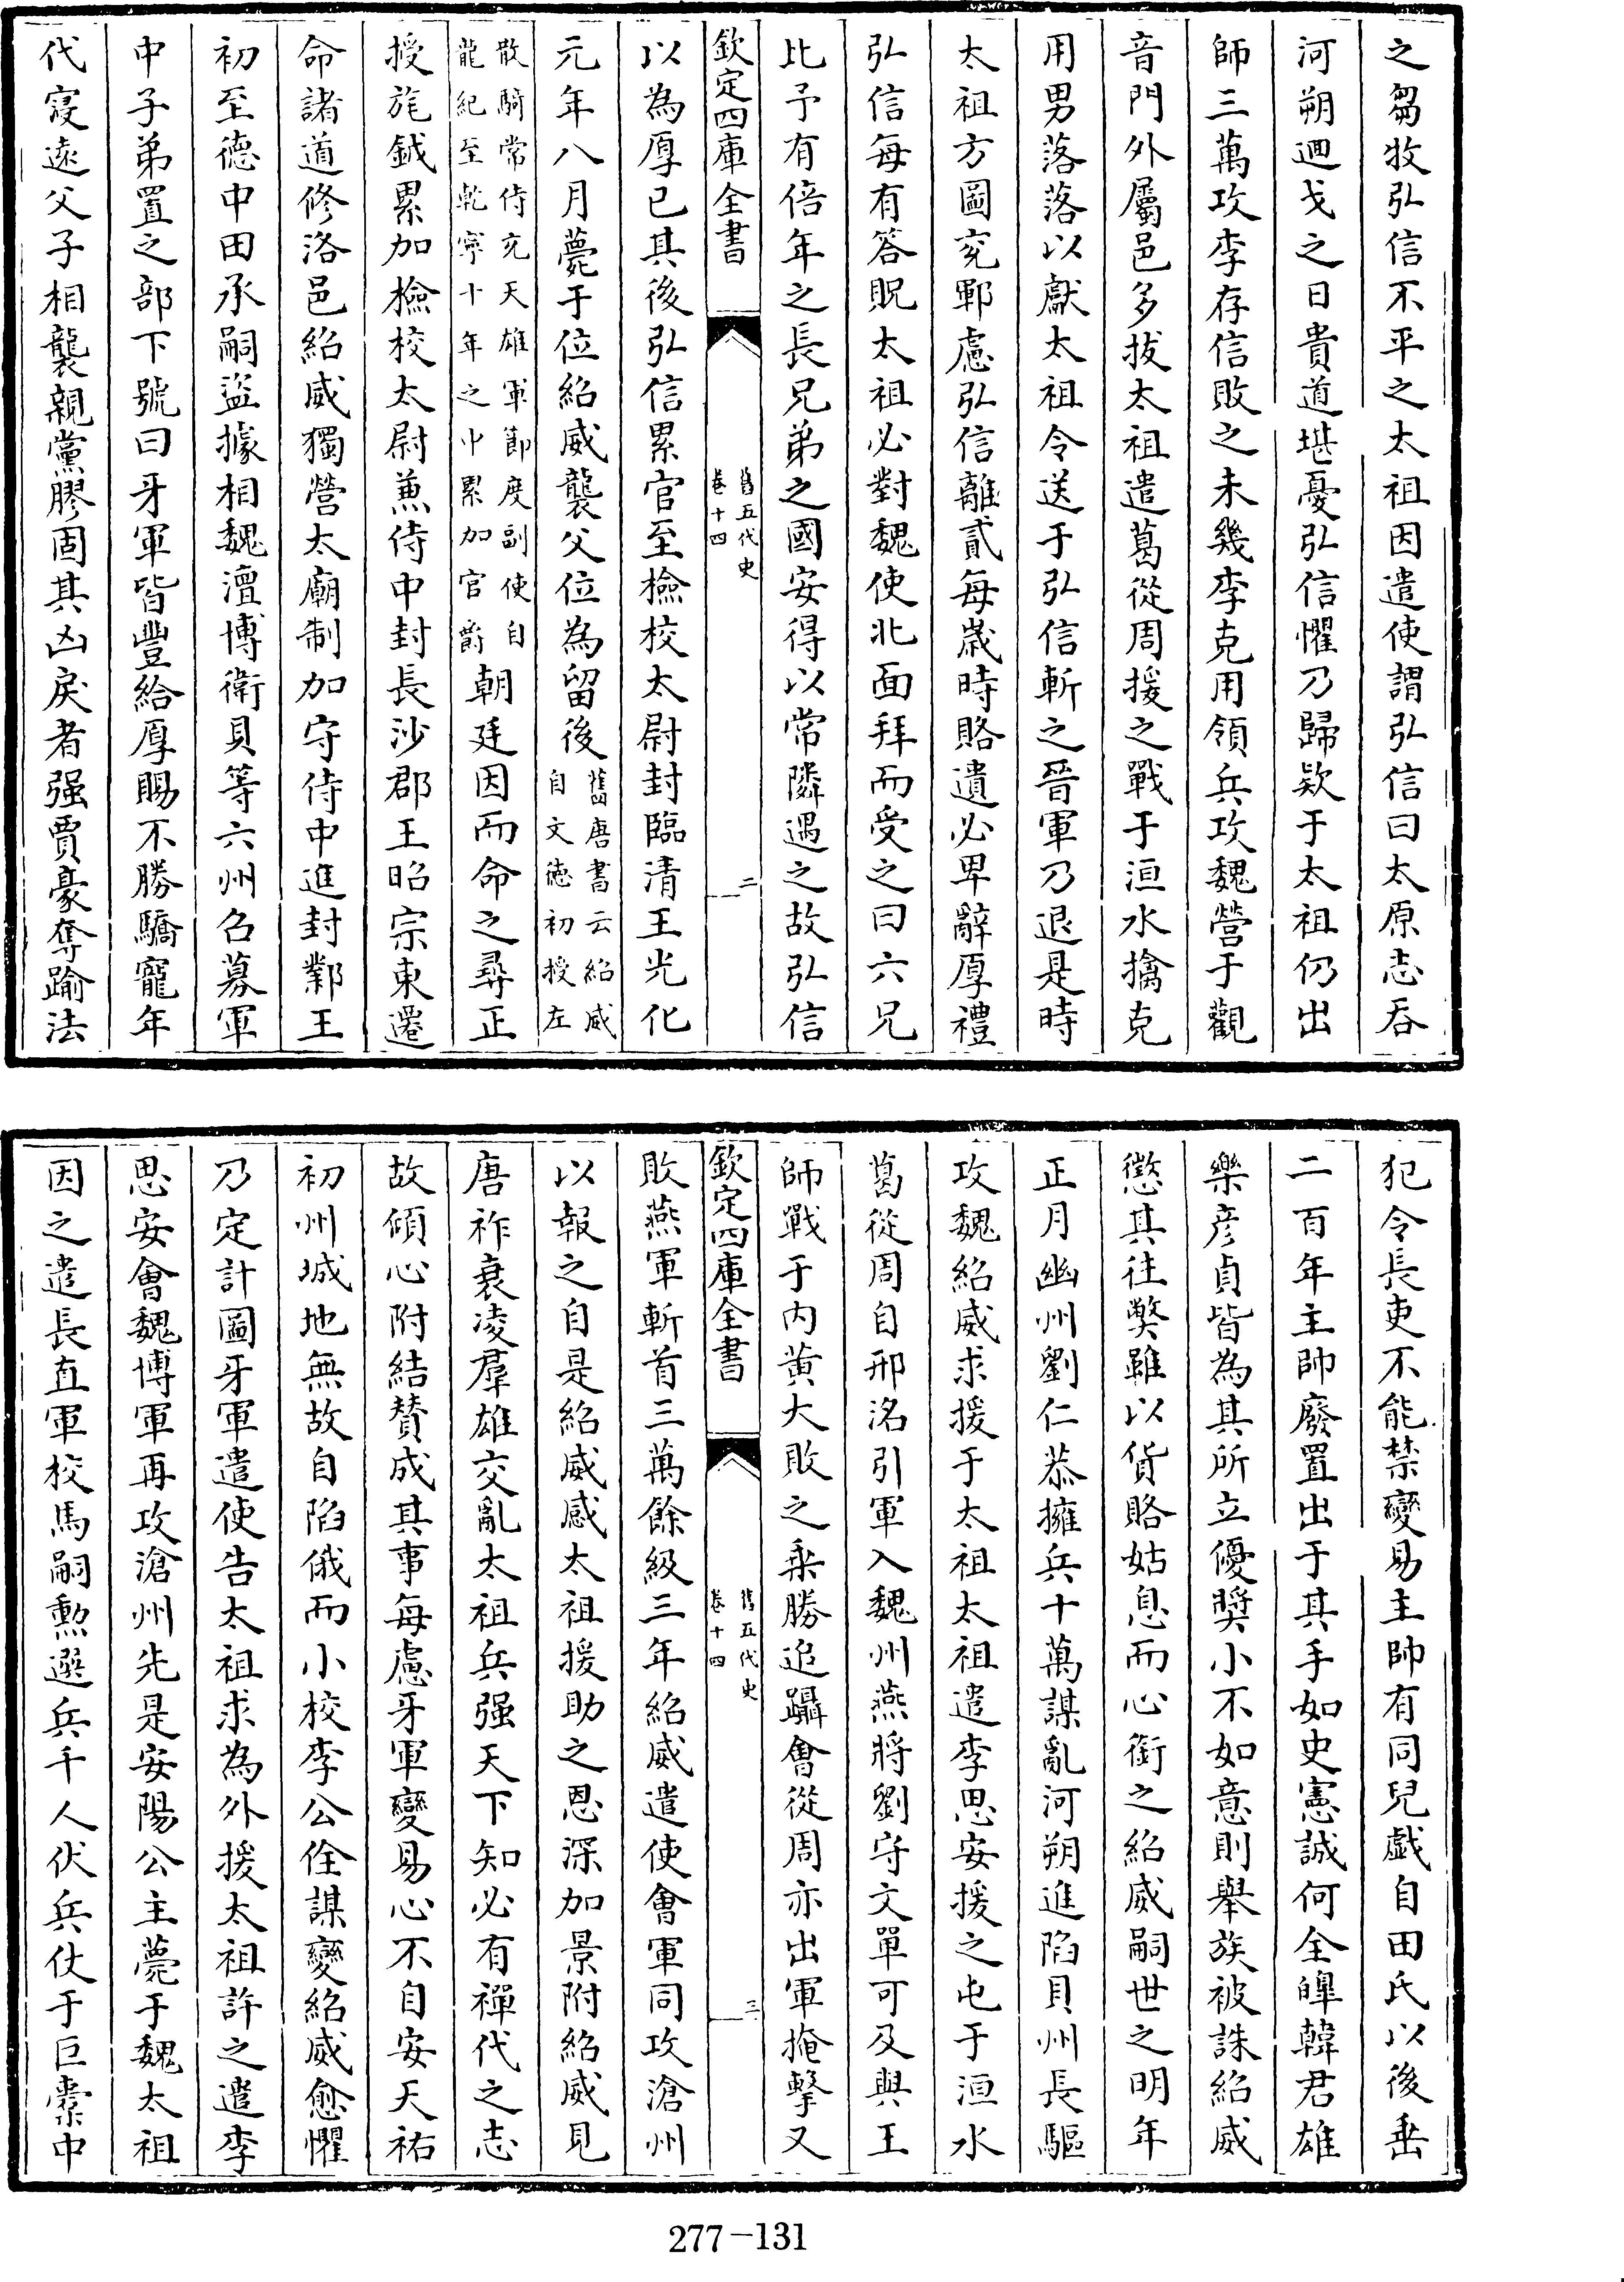 之芻牧弘信不平之太祖因遣使謂弘信曰太原志吞
河朔迴戈之日貴道堪憂弘信懼乃歸欵于太祖仍出
師三萬攻李存信敗之未幾李克用領兵攻魏營于觀
音門外屬邑多拔太祖遣葛從周援之戰于洹水擒克
用男落落以獻太祖令送于弘信斬之晉軍乃退是時
太祖方圖兗鄆慮弘信離貳每歲時賂遺必卑辭厚禮
弘信每有答貺太祖必對魏使北面拜而受之曰六兄
比予有倍年之長兄弟之國安得以常隣遇之故弘信
欽定四庫全書
舊五代史
卷十四
二
以為厚已其後弘信累官至檢校太尉封臨清王光化
元年八月薨于位紹威襲父位為留後舊唐書云紹威自文德初授左
散騎常侍充天雄軍節度副使自龍紀至乾寧十年之中累加官爵朝廷因而命之尋正
授旄鉞累加檢校太尉兼侍中封長沙郡王昭宗東遷
命諸道修洛邑紹威獨營太廟制加守侍中進封鄴王
初至德中田承嗣盜據相魏澶博衛貝等六州召募軍
中子弟置之部下號曰牙軍皆豐給厚賜不勝驕寵年
代寖遠父子相襲親黨膠固其凶戾者强賈豪奪踰法
犯令長吏不能禁變易主帥有同兒戲自田氏以後垂
二百年主帥廢置出于其手如史憲誠何全皥韓君雄
樂彦貞皆為其所立優奬小不如意則舉族被誅紹威
懲其往弊雖以貨賂姑息而心銜之紹威嗣世之明年
正月幽州劉仁恭擁兵十萬謀亂河朔進陷貝州長驅
攻魏紹威求援于太祖太祖遣李思安援之屯于洹水
葛從周自邢洺引軍入魏州燕將劉守文單可及與王
師戰于内黄大敗之乘勝追躡會從周亦出軍掩擊又
欽定四庫全書
舊五代史
卷十四
三
敗燕軍斬首三萬餘級三年紹威遣使會軍同攻滄州
以報之自是紹威感太祖援助之恩深加景附紹威見
唐祚衰凌羣雄交亂太祖兵强天下知必有禪代之志
故傾心附結贊成其事每慮牙軍變易心不自安天祐
初州城地無故自陷俄而小校李公佺謀變紹威愈懼
乃定計圖牙軍遣使告太祖求為外援太祖許之遣李
思安會魏博軍再攻滄州先是安陽公主薨于魏太祖
因之遣長直軍校馬嗣勲選兵千人伏兵仗于巨橐中
277-131